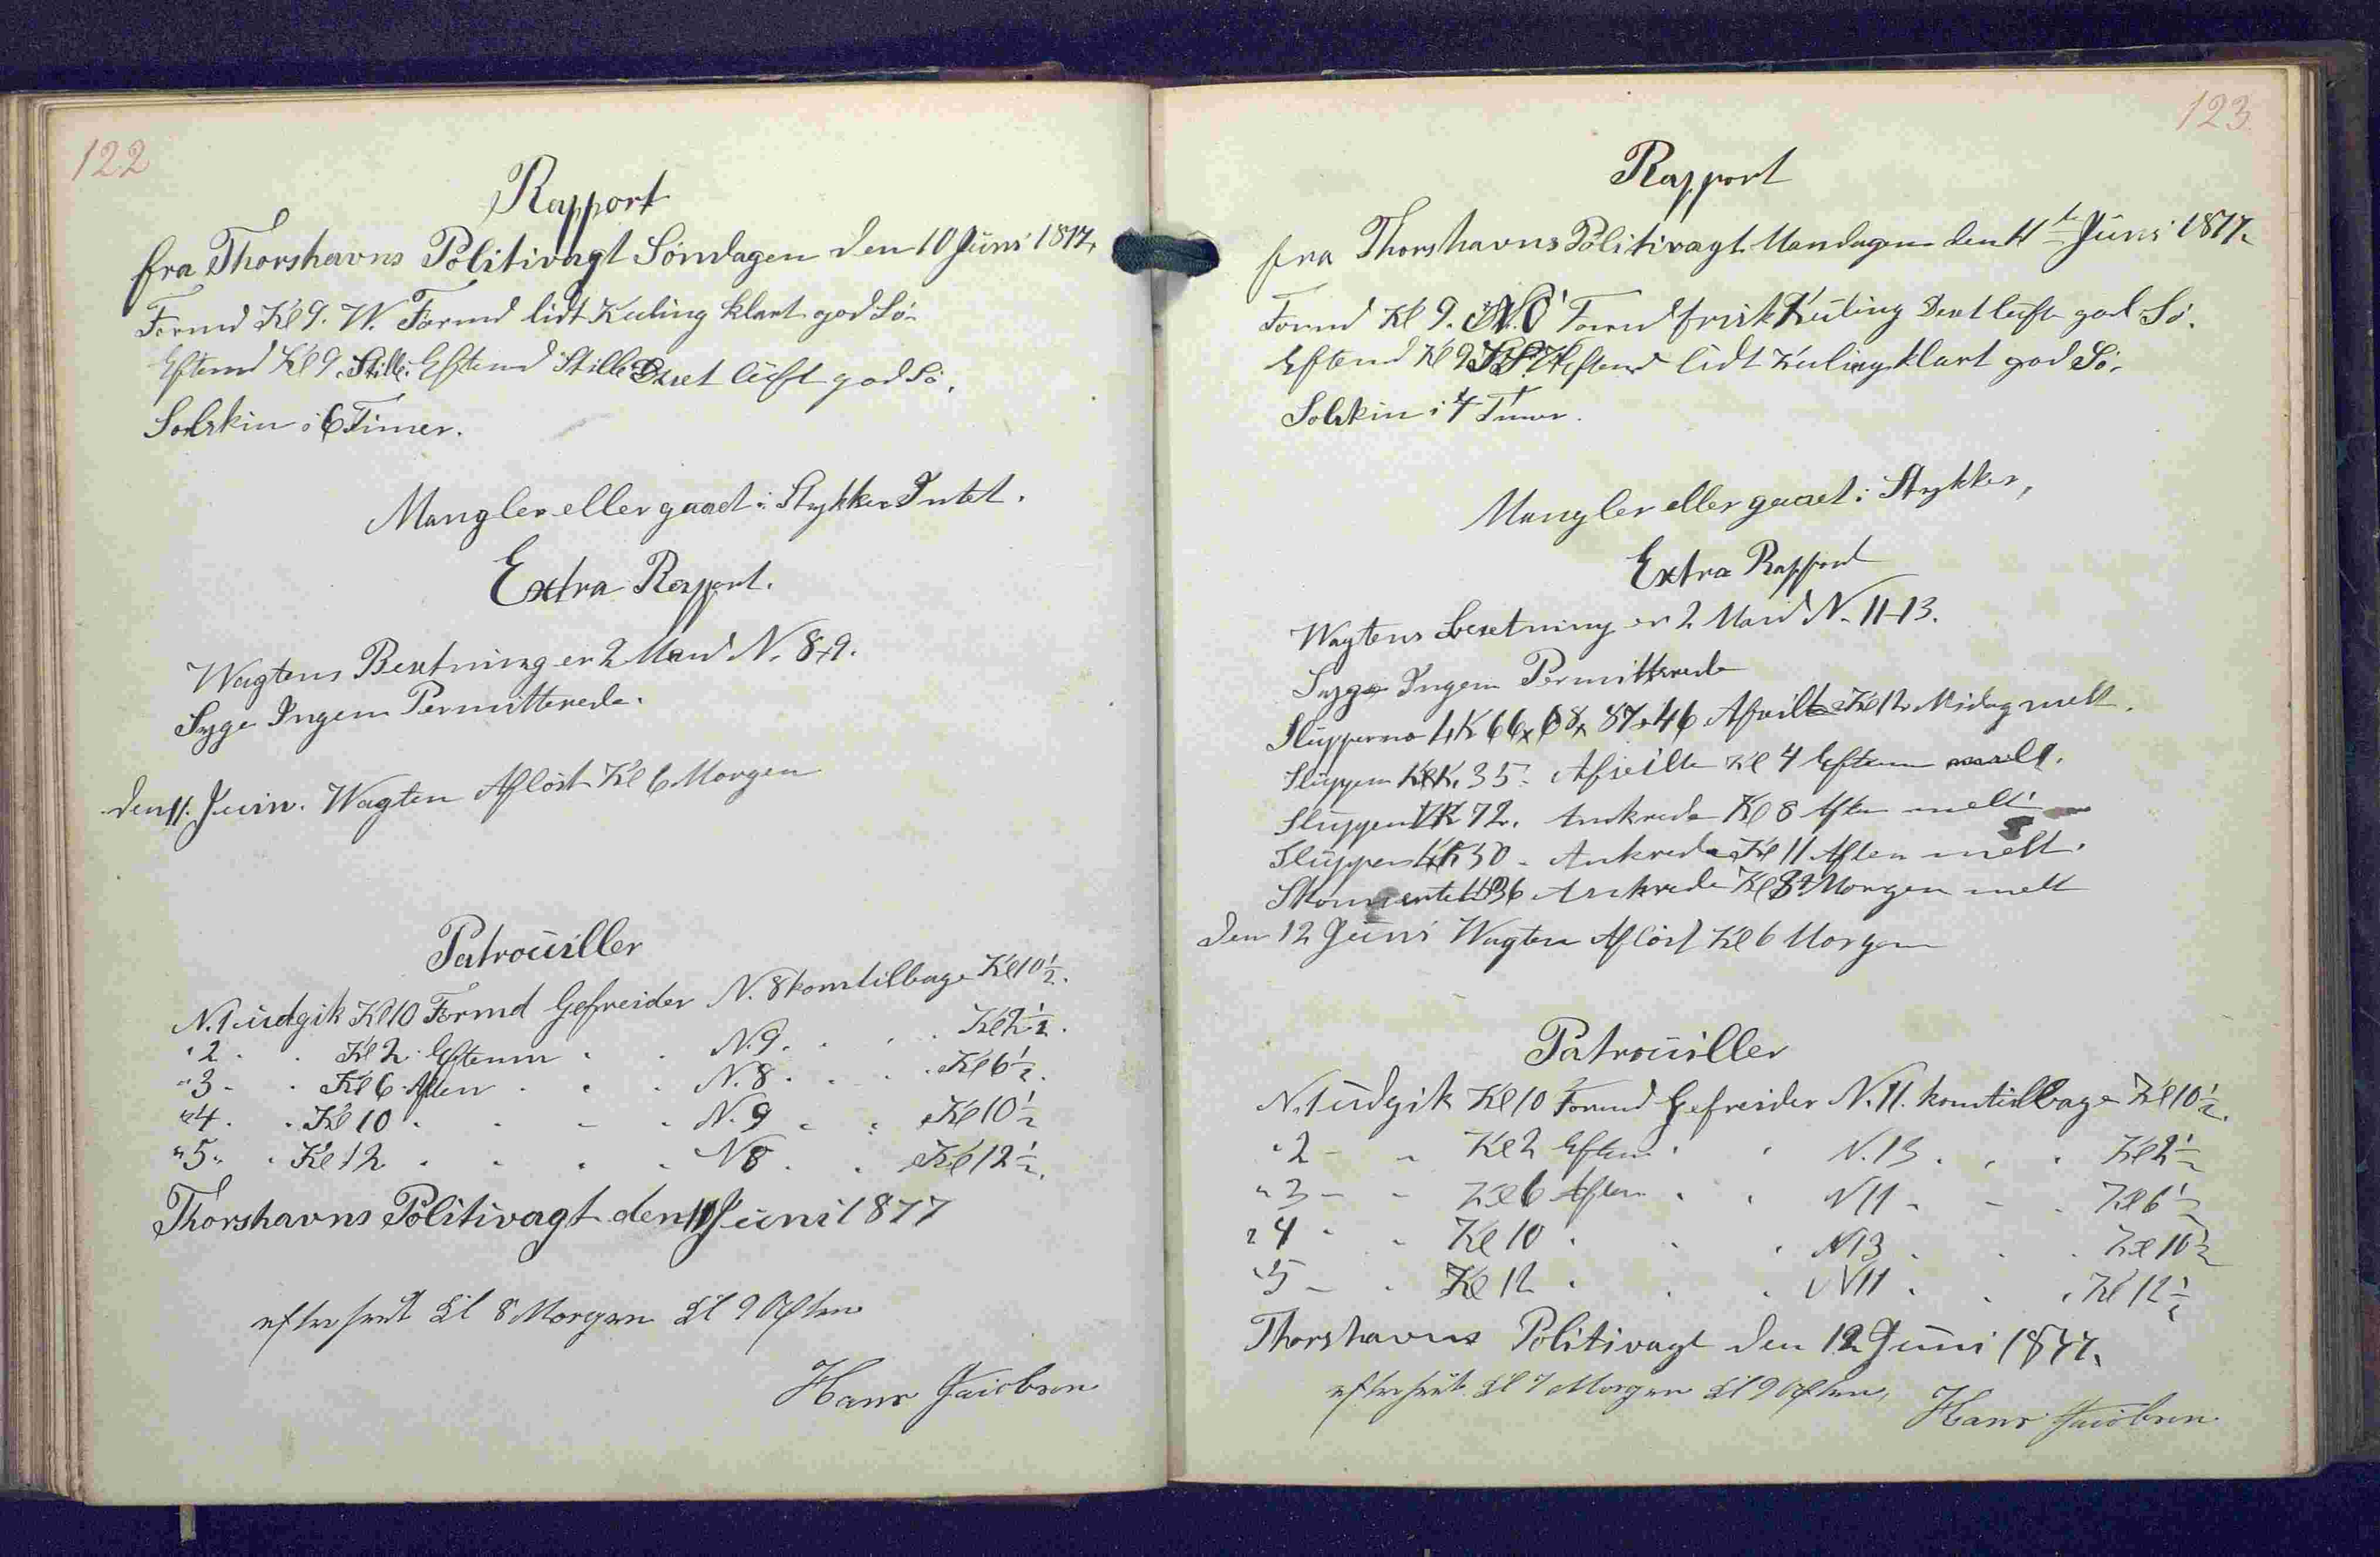 122
Rapport
fra Thorshavns Politivagt Søndagen den 10 Juni 1877,
Formd Kl 9. W. Formd lidt Kuling klart god Sø.
Eftemd Kl 9. Stille. Eftemd Stille Diset luft god Sø.
Solskin i 6 Timer.
Mangler eller gaaet i Stykker Intet.
Extra Rapport.
Wagtens Besetning er 2 Mand N. 8+9.
Syge Ingen Permitterede.
den 11. Juin. Wagten Afløst Kl 6 Morgen
Patrouiller
N. 1 udgik Kl 10 Formd Gefreider N. 8 kom tilbage Kl 10½.
" 2 . . Kl 2 Eftemm . . N. 9 . . . Kl 2½.
" 3 - . Kl 6 Aften . . . N. 8 . . . Kl 6½.
" 4 . . Kl 10 . . - . N. 9 . . Kl 10½
" 5 . . Kl 12 . . . . N 8 . . Kl 12½.
Thorshavns Politivagt den 11 Juni 1877
efterseet Kl 8 Morgen Kl 9 Aften
Hans Jacobsen
123
Rapport
fra Thorshavns Politivagt Mandagen den 11t Juni 1877.
Formd Kl 9. Formd frisk Kuling Diset luft god Sø.
Eftemd Kl 9 Eftemd lidt Kuling klart god Sø.
Solskin i 4 Timer.
Mangler eller gaaet i Stykker,
Extra Rapport
Wagtens Besetning er 2 Mand N. 11+13.
Syge Ingen Permitterede
Slupperne 66 x 68 x 87 x 46 Afseilte Kl 12 Midag melt.
Sluppen 35. Afseilte Kl 4 Eftem melt.
Sluppen 72. Ankrede Kl 8 Aften melt
Sluppen 30 - Ankrede Kl 11 Aften melt.
36 Ankrede Kl Morgen melt
den 12 Juni Wagten Afløst Kl 6 Morgen
Patrouiller
N. 1 udgik Kl 10 Formd Gefreider N. 11. kom tilbage Kl 10½.
" 2 - - Kl 2 Eftem . . N. 13 . . . Kl 2½
" 3 - - Kl 6 Aften . . N 11 - - . Kl 6½
" 4 - - Kl 10 . . . N 13 . . . Kl 10½
" 5 - . Kl 12 . . . N 11 . . . Kl 12½
Thorshavns Politivagt den 12 Juni 1877.
efterseet Kl 7 Morgen Kl 9 Aften,
Hans Jacobsen